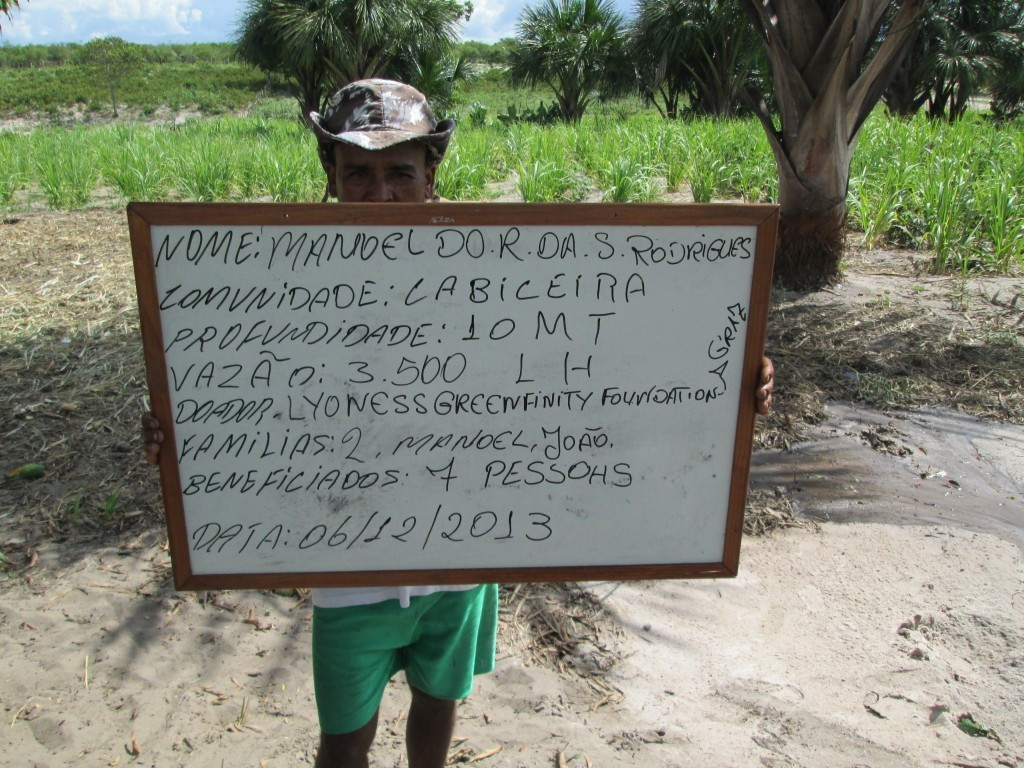 NOME: MANOEL DO.R.DA.S.RODRIGUES
COMUNIDADE: CABICEIRA
PROFUNDIDADE: 10 MT
VAZÃO: 3.500 LH
DOADOR. LYONESS GREENFINITY FOUNDATION-
FAMILIAS: 2, MANOEL, JOÃO.
BENEFICIADOS: 7 PESSOAS
DATA: 06/12/2013